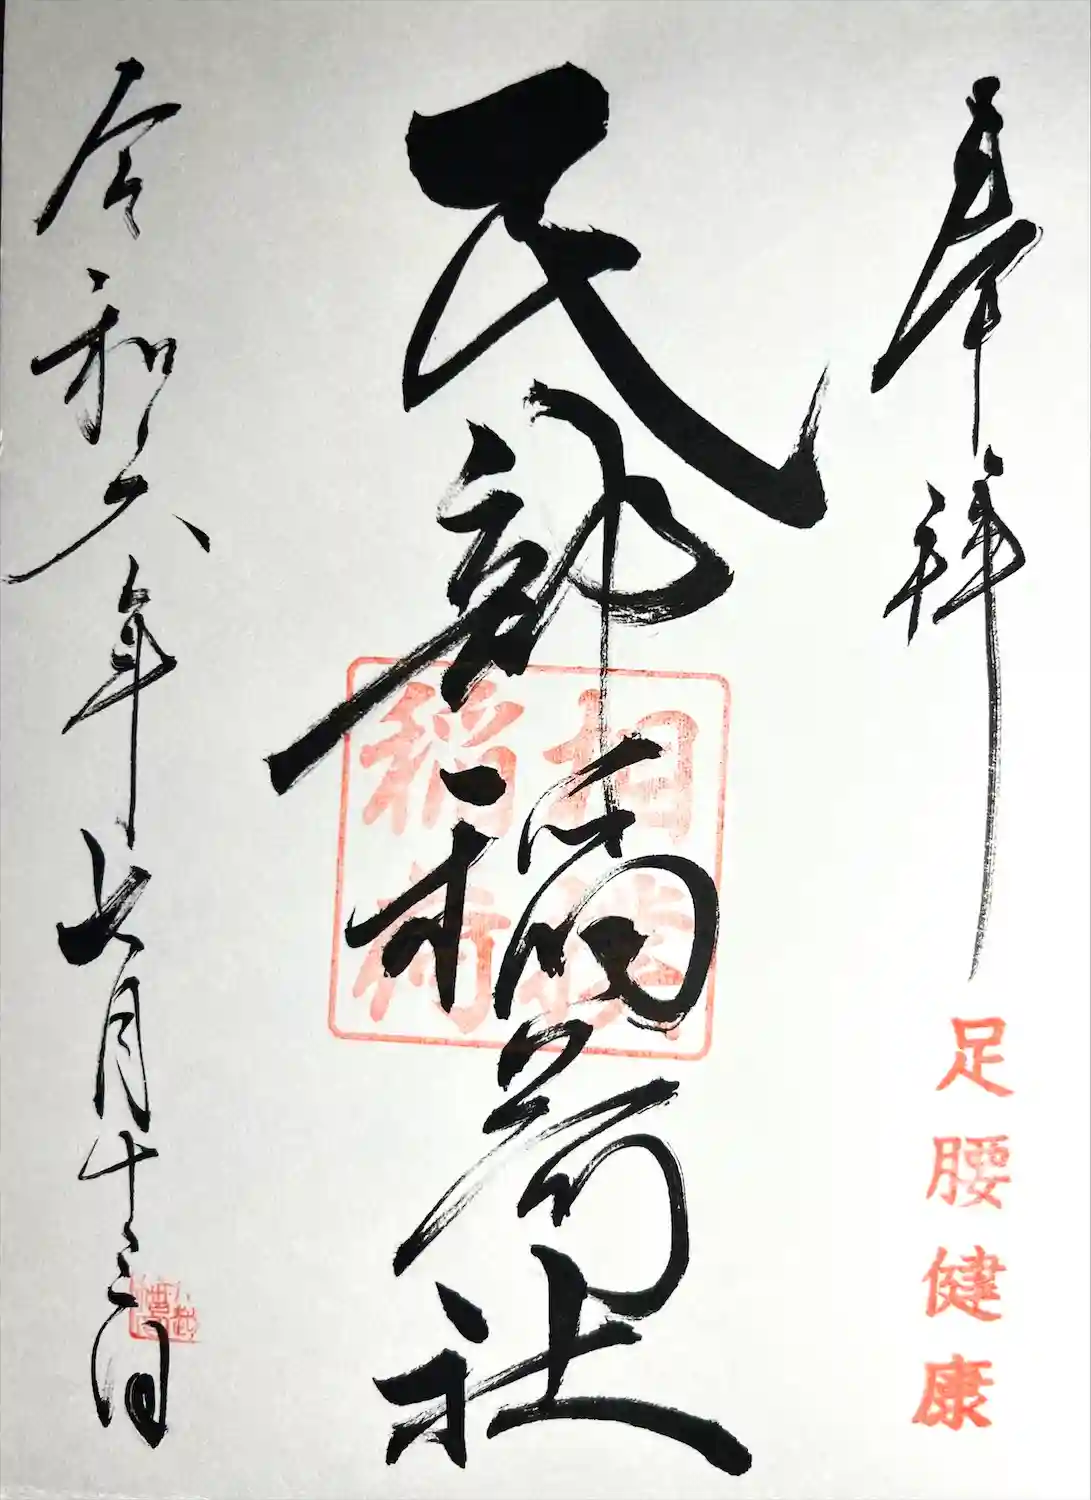 奉拝
足腰健康
民部稲荷社
相撲稲荷
令和六年七月十三日